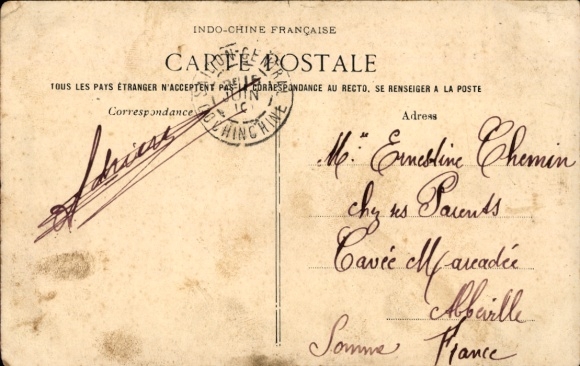 INDO-CHINE FRANÇAISE
CARTE POSTALE
TOUS LES PAYS ÉTRANGER N'ACCEPTENT PAS LA CORRESPONDANCE AU RECTO, SE RENSEIGER A LA POSTE
Correspondance
Adress
15
JUIN
COCHINCHINE
Mlle Ernestine Chemin
chez ses Parents
Cavée Marcadée
Abbeville
Somme France